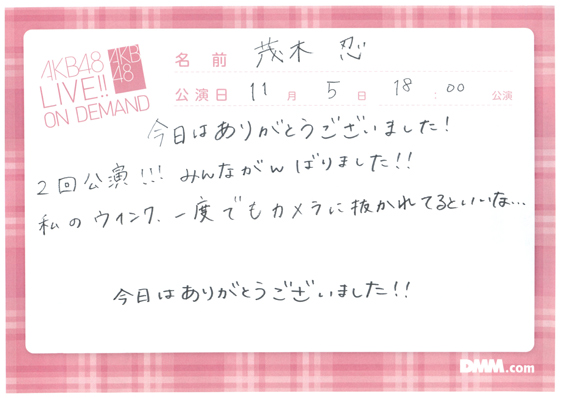 AKB48
LIVE!!
ON DEMAND
AKB
48
名 前 茂木 忍
公演日 11 月 5 日 18 : 00 公演
今日はありがとうございました!
2回公演!!! みんながんばりました!!
私のウインク、一度でもカメラに抜かれてるといいな…
今日はありがとうございました!!
DMM.com